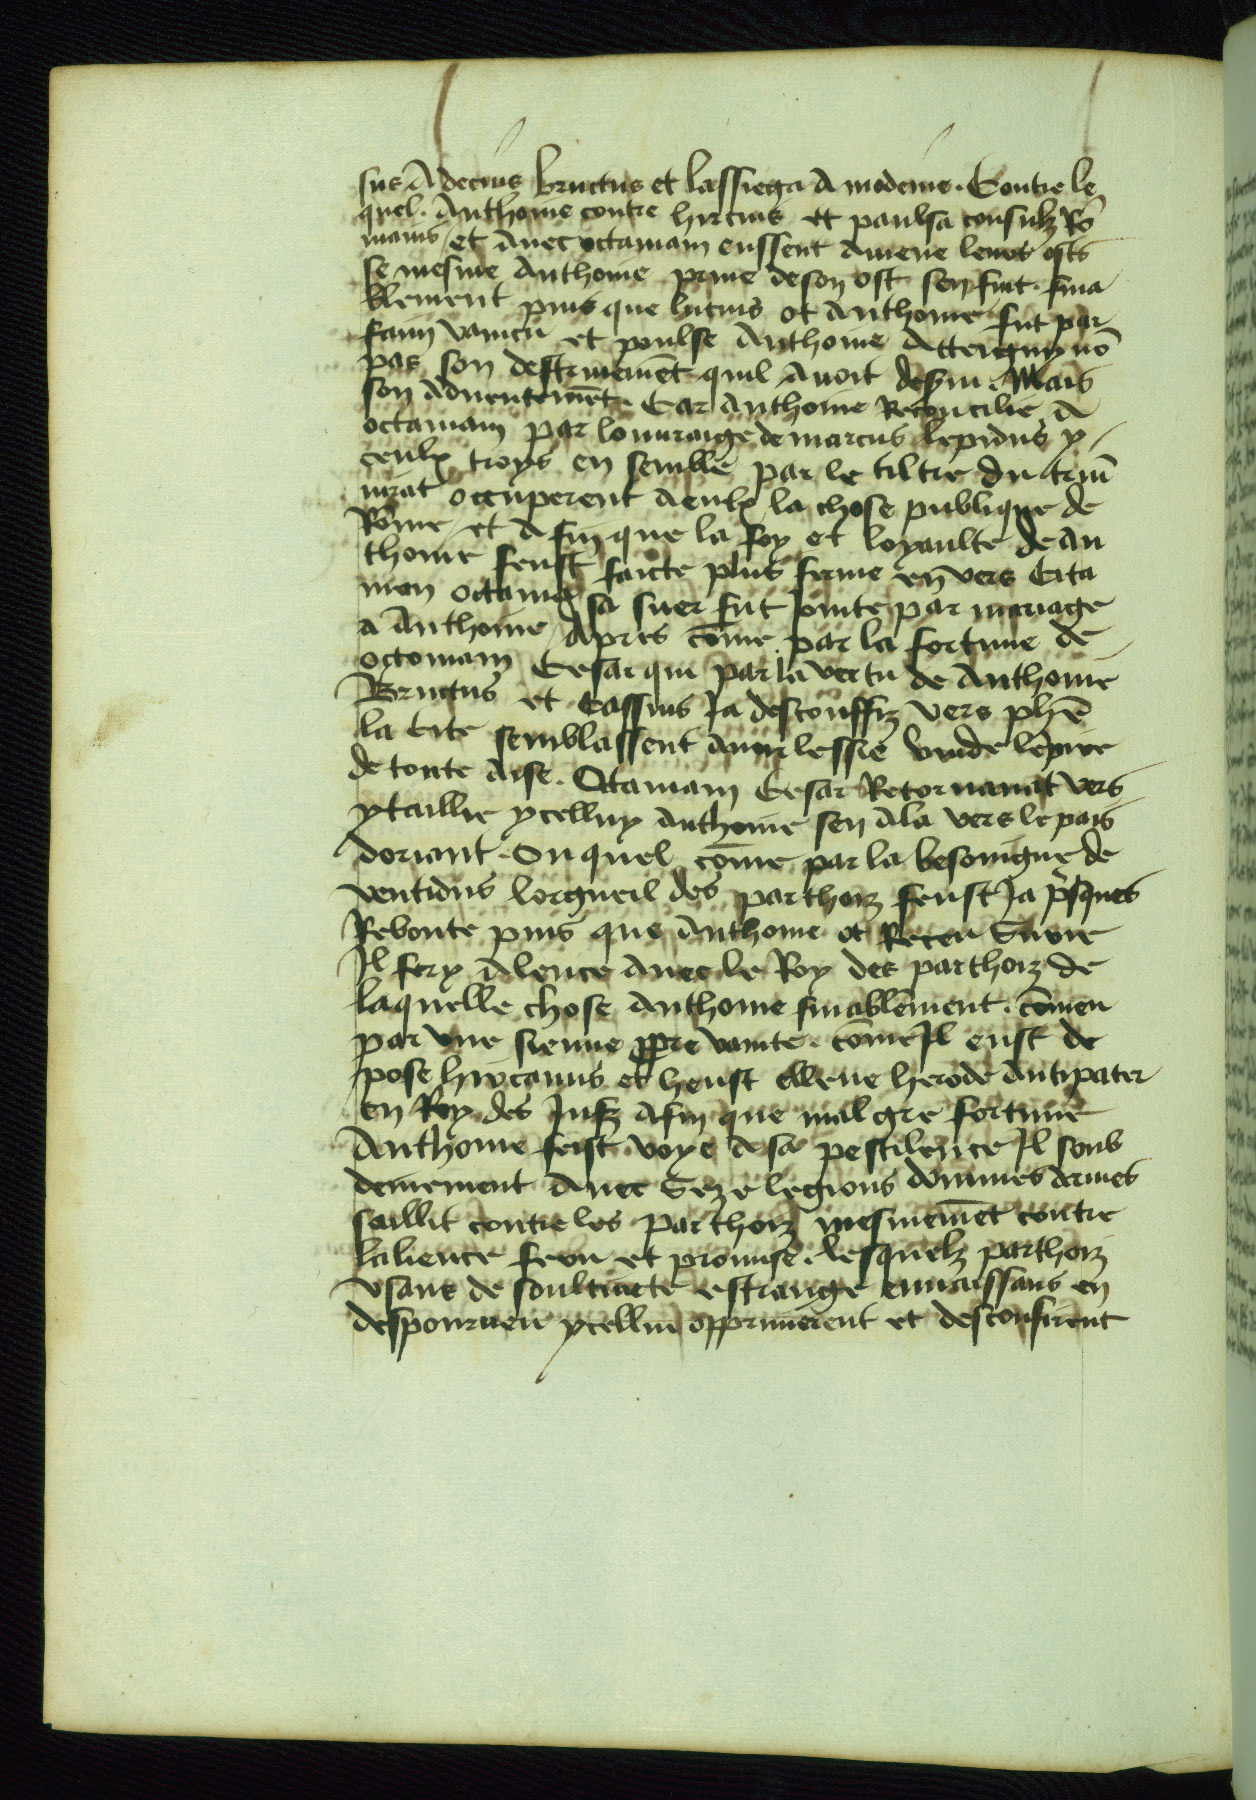 sus A decius bructus et lassiega a modeine. Contre le
quel. Anthoine contre hircius et paulsa consulz Rō
mains / et avec octamam eussent amene leurs osts
se mesme Anthoine prive de son ost sen fuit. fina
blement puis que lucius ot anthoine fut par
faim vaincu et poulse Anthoine Attengny nō
pas son destrinemēt quil Avoit desvu. Mais
son adventemēt. Car Anthoine Reconcilie A
octamam par louvraige de marcus lepidus y
ceulx troys en semble par le tiltre du trium
virat occuperent a eulx la chose publique de
Rome / et A fin que la foy et loyaulte de An
thoine feust faicte plus ferme en vers Octa
men octamen sa suer fut Jointe par mariage
a Anthoine / Apres cōme par la fortune de
octomam Cesar qui par la vertu de Anthoine
Bructus et Cassius Ja desconffiz vers phē
la Cite semblassent avoir lessie vuide lepire
de toute Aise. Octamam Cesar Retornanat vers
ytaillie ycelluy anthoine sen Ala vers le pais
doriant. On quel cōme par la besoingne de
ventidus lorgueil des parthoiz feust Ja presques
Reboute puis que Anthoine ot Receu Surie
Il fery Alence avec le Roy des parthoiz de
laquelle chose Anthoine finablement. cōmeu
par une sienne propre vanite. cōme Il eust de
pose hircanus et heust elleue herode antipater
en Roy des Juifz afin que mal gre fortune
Anthoine feist voye a sa pestilence Il soub
deinement Avec Seze legions dommes darmes
saillit contre les parthoiz mesmemēt contre
lalience feru et promise. lesquelz parthoiz
usans de soultivete estrange envaissans en
despourveu ycelluy opprimerent et desconfirent